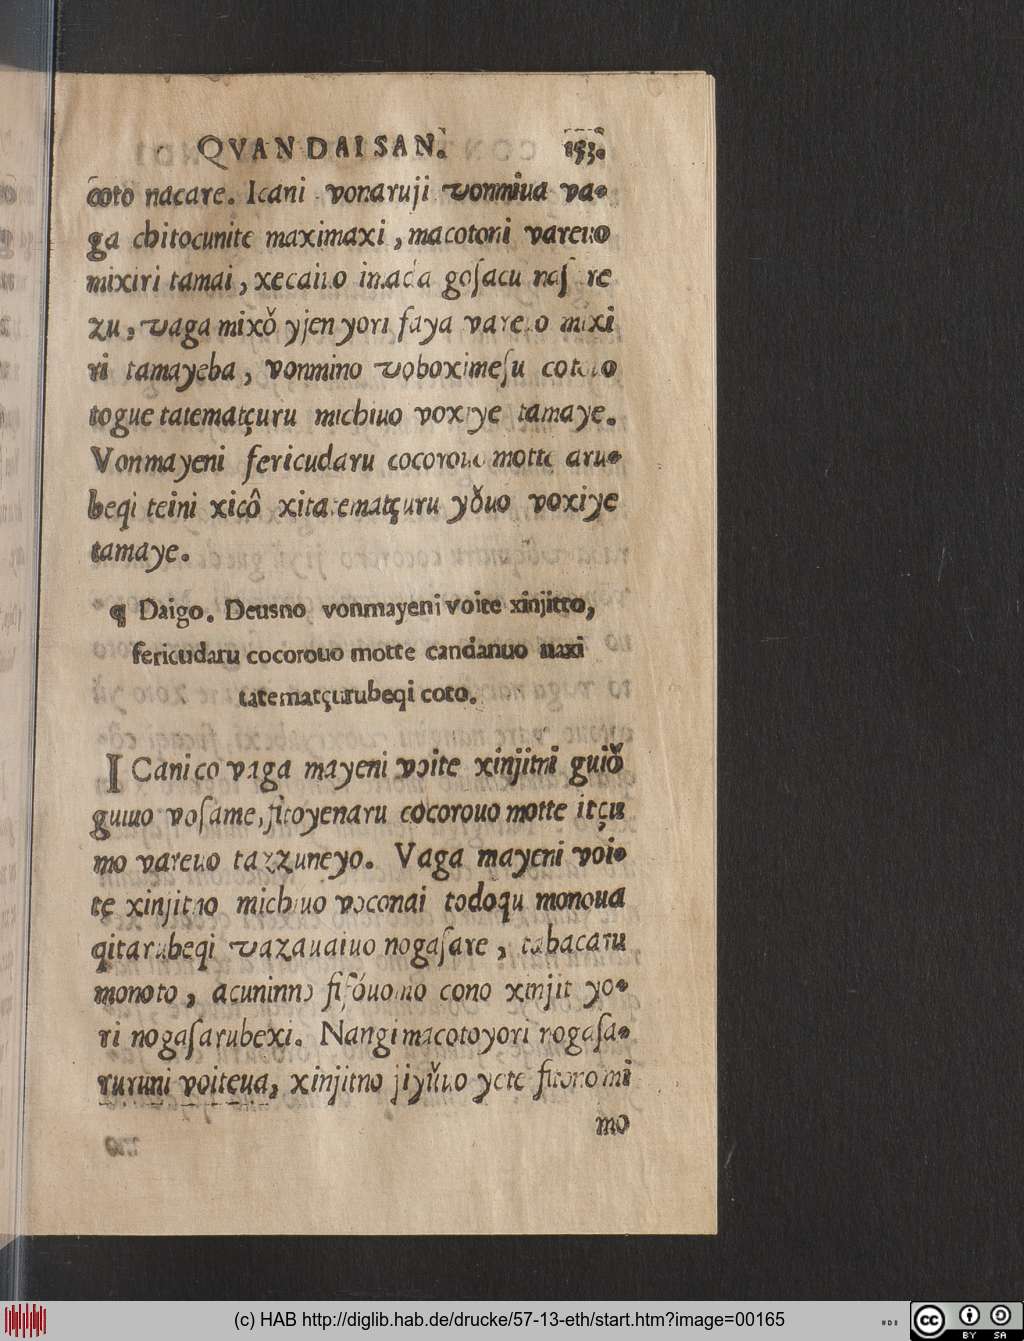 QVAN DAI SAN. 153.
coto nacare. Icani vonaruji vonmiua va-
ga chitocunite maximaxi, macotoni vareuo
mixiri tamai, xecaiuo inada goſacu naſ re
zu, vaga mixǒ yjen yori faya vareuo mixi
ri tamayeba, vonmino voboximeſu cotouo
togue tatematçuru michiuo voxiye tamaye.
Vonmayeni fericudaru cocorouo motte aru-
beqi teini xicô xitatematçuru yǒuo voxiye
tamaye.
¶ Daigo. Deusno vonmayeni voite xinjitto,
fericudaru cocorouo motte candanuo naxi
tatematçurubeqi coto.
ICani co vaga mayeni voite xinjitni guiǒ
guiuo voſame, fitoyenaru cocorouo motte itçu
mo vareuo tazzuneyo. Vaga mayeni voi-
te xinjitno michiuo voconai todoqu monoua
qitarubeqi vazauaiuo nogaſare, tabacaru
monoto, acuninno fifǒuomo cono xinjit yo-
ri nogaſarubexi. Nangi macotoyori nogaſa-
ruruni voiteua, xinjitno jiyǔuo yete fitono mi
mo
(c) HAB http://diglib.hab.de/drucke/57-13-eth/start.htm?image=00165
cc BY SA